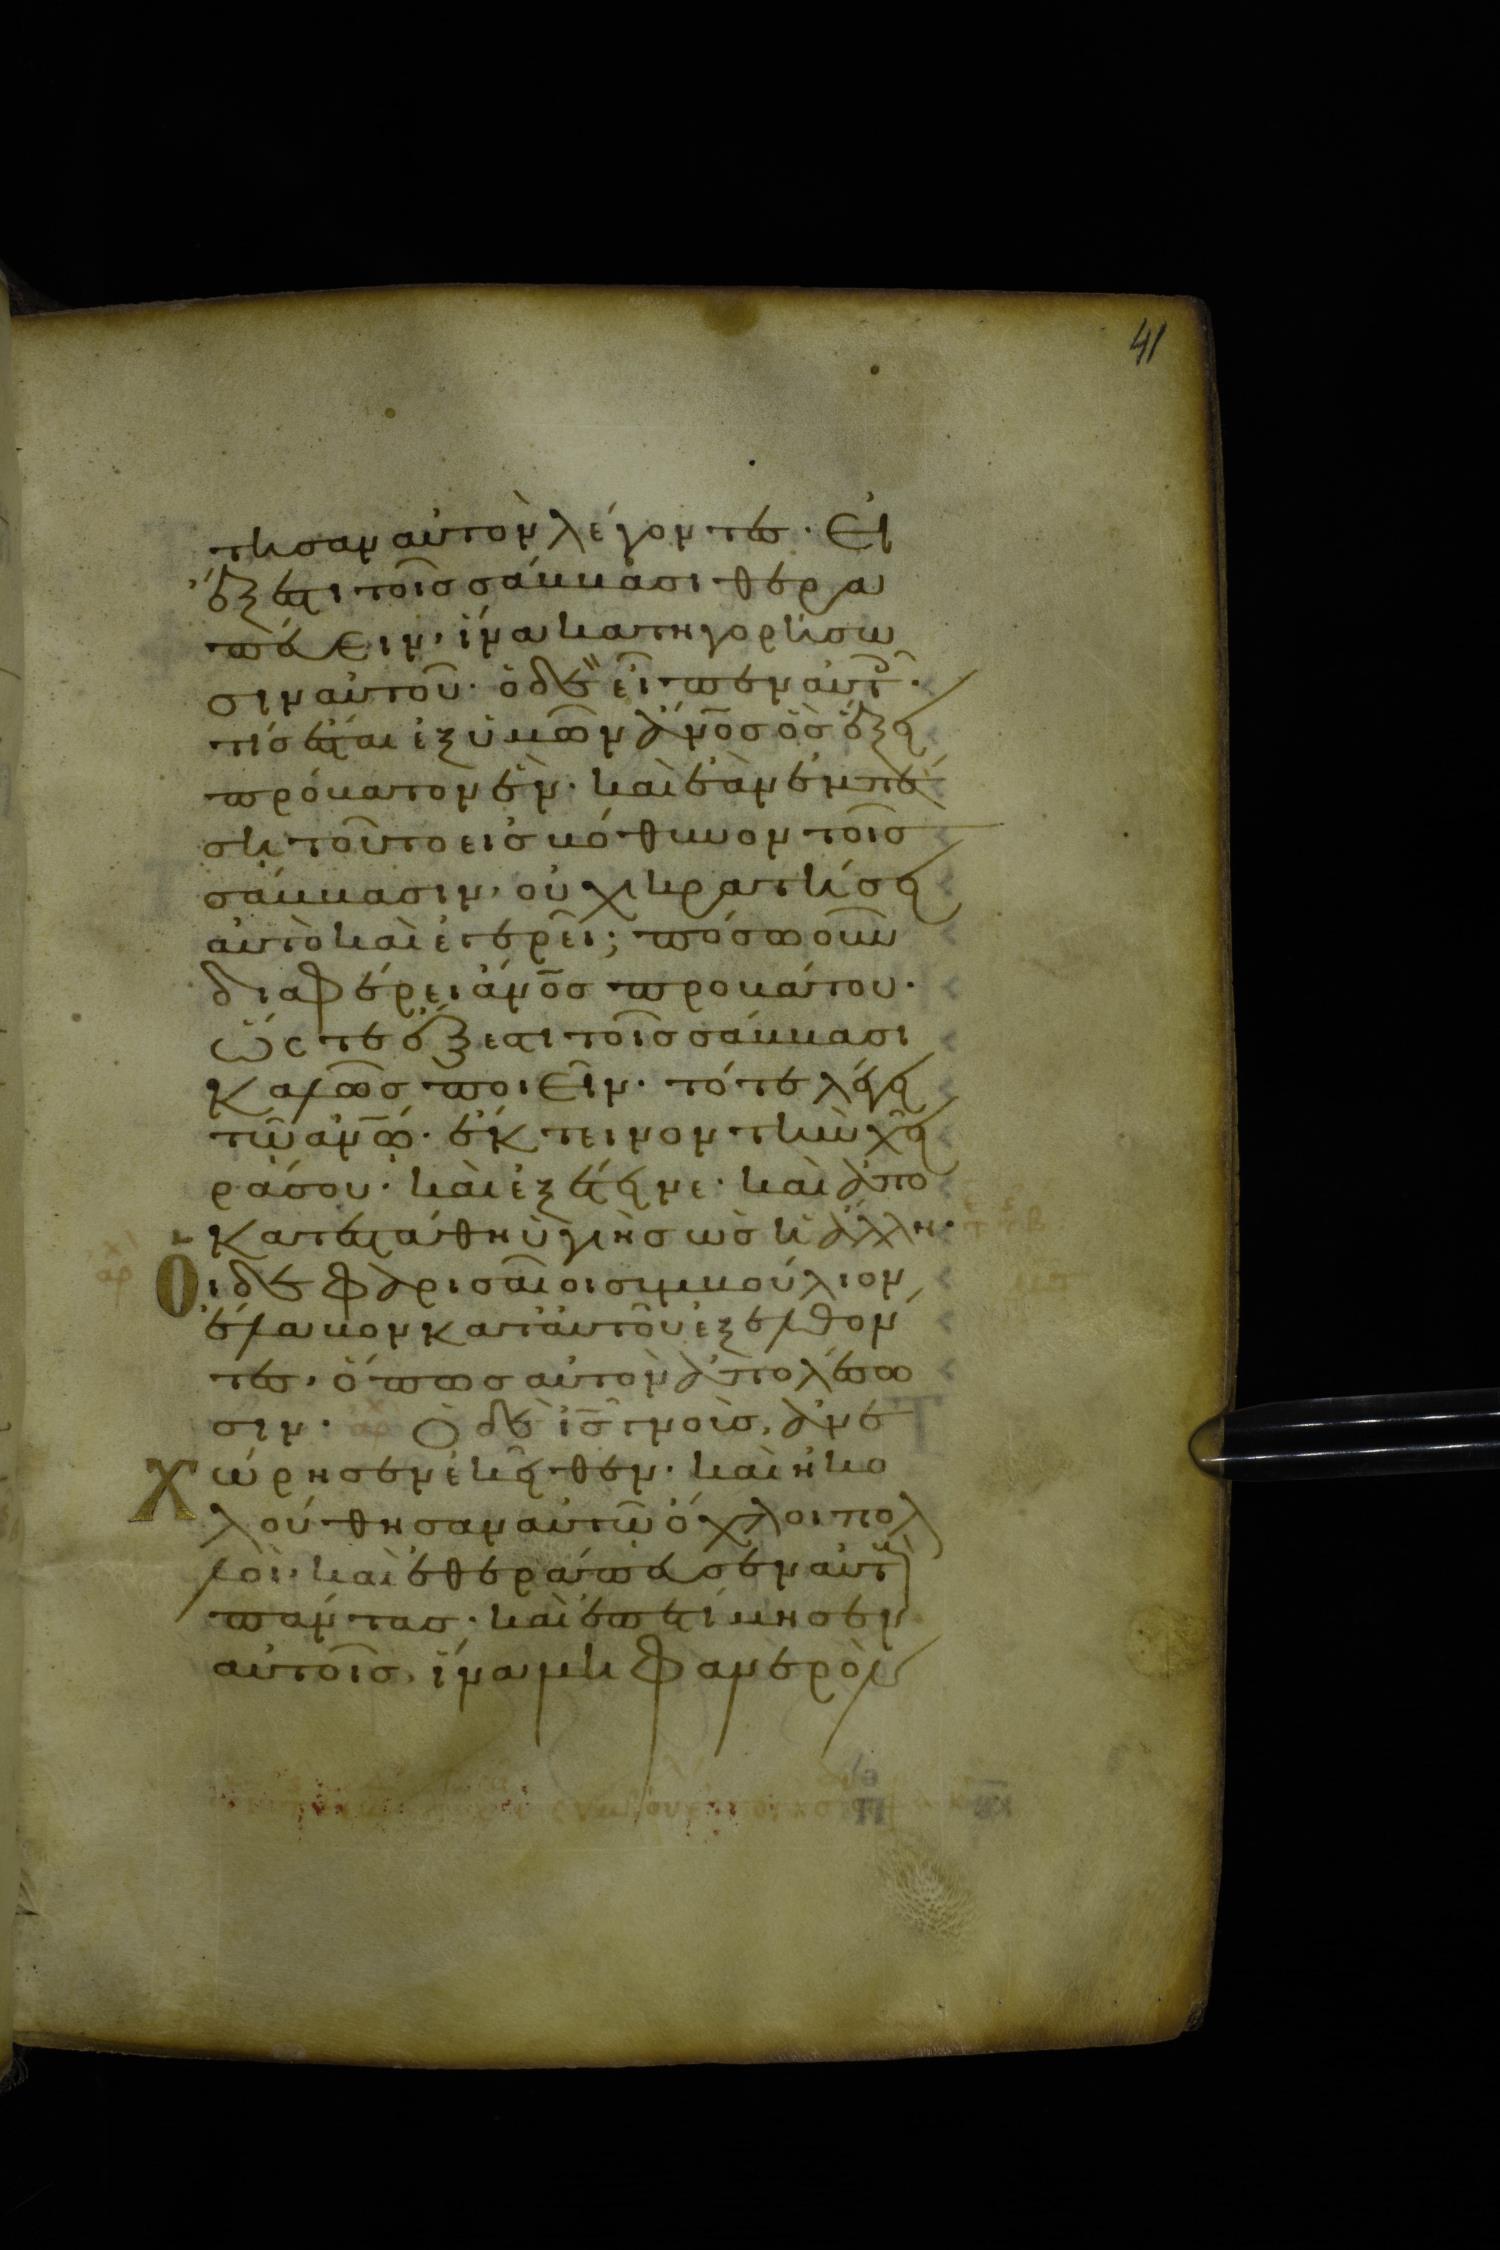 41
τησαν αὐτὸν λέγοντες· Εἰ
ἔξεστι τοῖς σάββασι θερα
πεύειν, ἵνα κατηγορήσω
σιν αὐτοῦ· ὁ δὲ εἶπεν αὐτοῖς·
τίς ἔσται ἐξ ὑμῶν ἄνος ὃς ἕξει
πρόβατον ἕν· καὶ ἐὰν ἐμπέ
ση τοῦτο εἰς βόθυνον τοῖς
σάββασιν, οὐχὶ κρατήσει
αὐτὸ καὶ ἐγερεῖ; πόσω οὖν
διαφέρει ἄνος προβάτου·
ὥςτε ἔξεστι τοῖς σάββασι
καλῶς ποιεῖν· τότε λέγει
τῶ ἀνω· ἔκτεινον τὴν χεῖ
ρά σου· καὶ ἐξέτεινε· καὶ ἀπο
κατεστάθη ὑγιὴς ὡς ἡ ἄλλη·
Οἱ δὲ φαρισαῖοι συμβούλιον
ἔλαβον κατ' αὐτοῦ ἐξελθόν
τες, ὅπως αὐτὸν ἀπολέσω
σιν· Ὁ δὲ ις γνοὺς, ἀνε
χώρησεν ἐκεῖθεν· καὶ ἠκο
λούθησαν αὐτῶ ὄχλοι πολ
λοὶ· καὶ ἐθεράπευσεν αὐτοὺς
πάντας· καὶ ἐπετίμησεν
αὐτοῖς, ἵνα μὴ φανερὸν